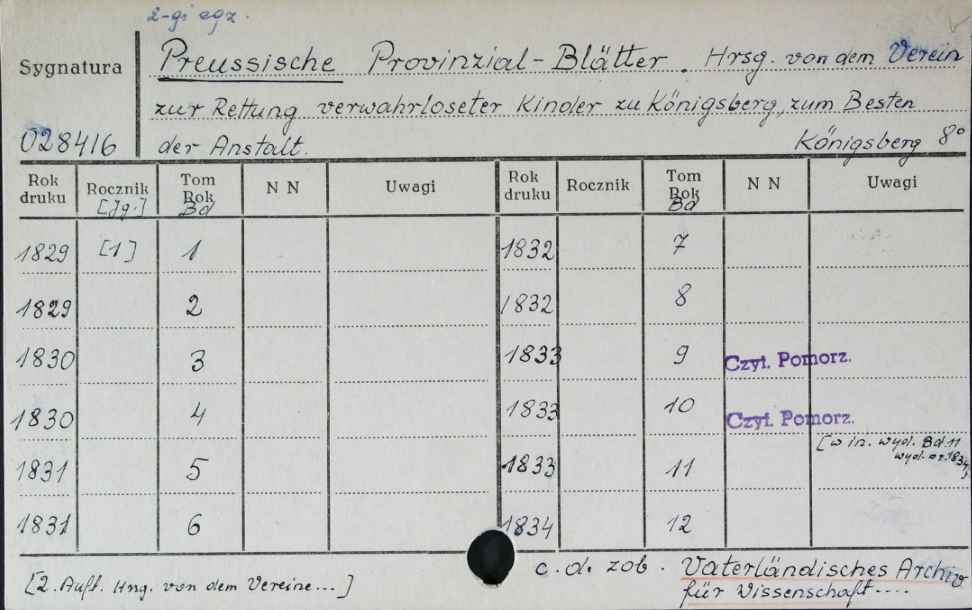 2-gi egz.
Sygnatura
Preussische Provinzial-Blätter. Hrsg. von dem Verein
zur Rettung verwahrloseter Kinder zu Königsberg, zum Besten
028416 der Anstalt. Königsberg 8°
Rok druku Rocznik [Jg.] Tom Rok Bd N N Uwagi Rok druku Rocznik Tom Rok Bd N N Uwagi
1829 [1] 1 1832 7
1829 2 1832 8
1830 3 1833 9 Czyt. Pomorz.
1830 4 1833 10 Czyt. Pomorz.
[w in. wyd. Bd. 11
1831 5 1833 11 wyd. 1834]
1831 6 1834 12
[2. Aufl. Hrsg. von dem Vereine...] c.d. zob. Vaterländisches Archiv
für Wissenschaft....